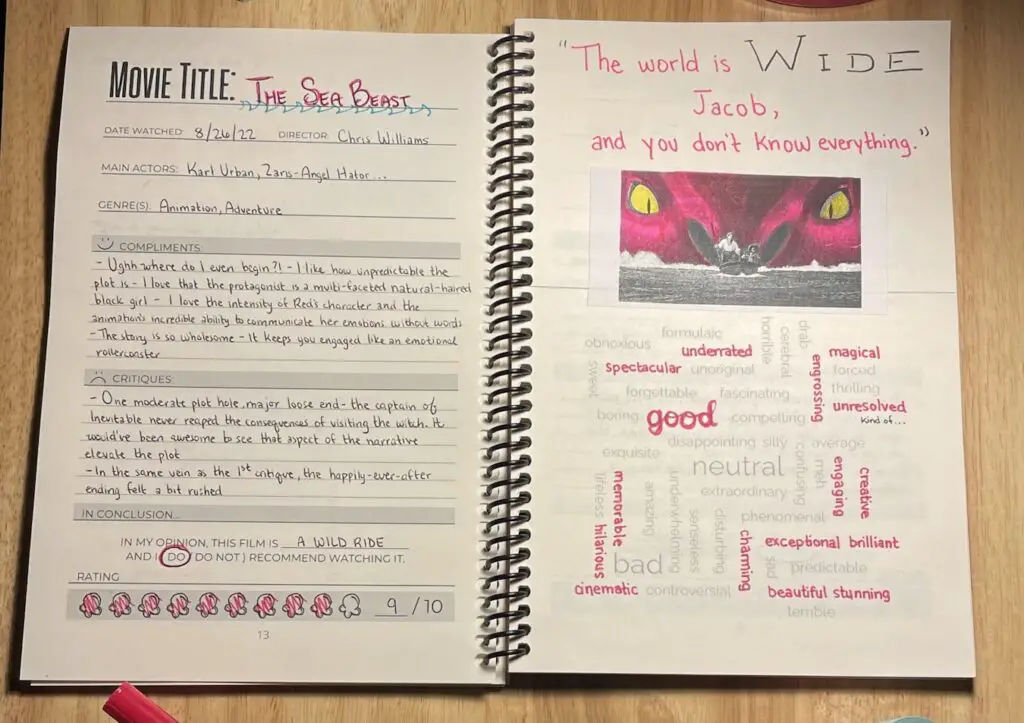 MOVIE TITLE: THE SEA BEAST
DATE WATCHED: 8/26/22 DIRECTOR: Chris Williams
MAIN ACTORS: Karl Urban, Zaris-Angel Hator...
GENRE(S): Animation, Adventure
COMPLIMENTS:
- Ughh where do I even begin?! - I like how unpredictable the
plot is - I love that the protagonist is a multi-faceted natural-haired
black girl - I love the intensity of Red's character and the
animation's incredible ability to communicate her emotions without words
- The story is so wholesome - It keeps you engaged like an emotional
rollercoaster
CRITIQUES:
- One moderate plot hole, major loose end - the captain of
Inevitable never reaped the consequences of visiting the witch. It
would've been awesome to see that aspect of the narrative
elevate the plot
- In the same vein as the 1st critique, the happily-ever-after
ending felt a bit rushed
IN CONCLUSION...
IN MY OPINION, THIS FILM IS A WILD RIDE
AND I (DO / DO NOT) RECOMMEND WATCHING IT.
RATING
9 / 10
13
"The world is WIDE
Jacob,
and you don't know everything."
obnoxious
formulaic
horrible
cerebral
drab
underrated
magical
spectacular
unoriginal
engrossing
forced
sweet
forgettable
fascinating
thrilling
boring
good
compelling
unresolved
kind of...
disappointing
silly
average
exquisite
neutral
confusing
meh
engaging
creative
lifeless
memorable
amazing
underwhelming
extraordinary
senseless
disturbing
phenomenal
hilarious
charming
exceptional
brilliant
bad
sad
predictable
cinematic
controversial
beautiful
stunning
terrible